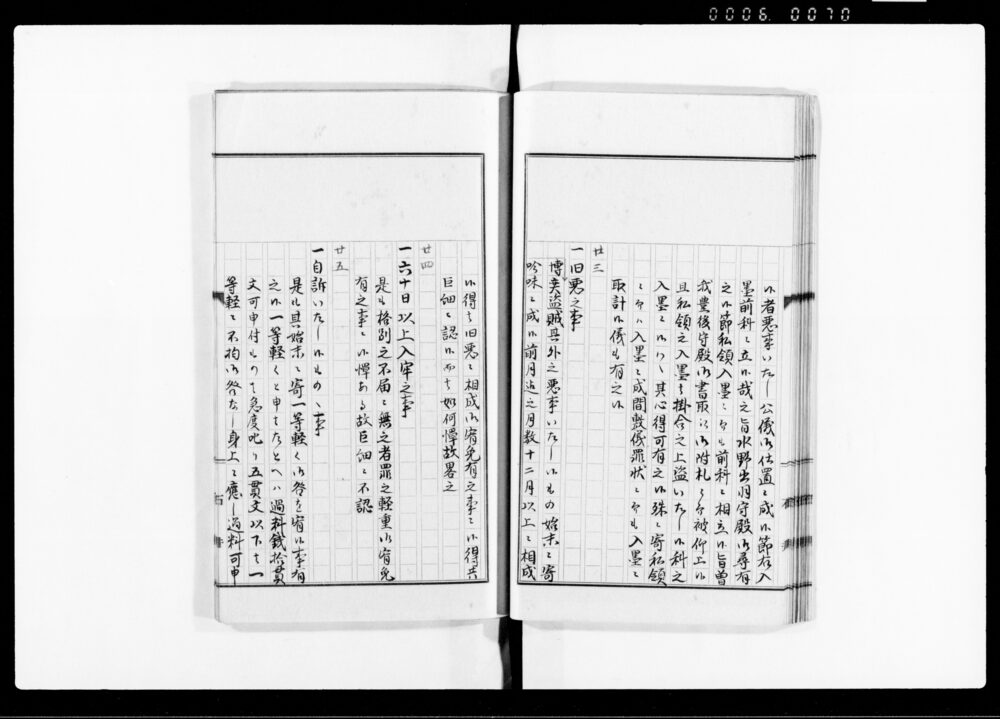 0006 0070
候者悪事いたし公儀御仕置ニ成候節右入
墨前科ニ立候哉之旨水野出羽守殿御尋有
之候節私領入墨ニ而も前科ニ相立候旨曽
我豊後守殿御書取江御附札ニ而被仰上候
且私領之入墨を掛合之上盗いたし候科之
入墨ニ候ハヽ其心得可有之候殊ニ寄私領
ニ而ハ入墨ニ成間敷儀罪状ニ而も入墨ニ
取計候儀も有之候
廿三
一旧悪之事
博奕盗賊其外之悪事いたし候もの始末ニ寄
吟味ニ成候前月迄之月数十二月以上ニ相成
候得は旧悪ニ相成御宥免有之事ニ候得共
巨細ニ認候而は如何憚故畧之
廿四
一六十日以上入牢之事
是も格別之不届ニ無之者罪之軽重御宥免
有之事ニ候憚ある故巨細ニ不認
廿五
一自訴いたし候ものゝ事
是も其始末ニ寄一等軽く御咎を宥候事有
之候一等軽くと申はたとへハ過料銭拾貫
文可申付ものは急度叱り五貫文以下は一
等軽ニ不拘御咎なし身上ニ応し過料可申